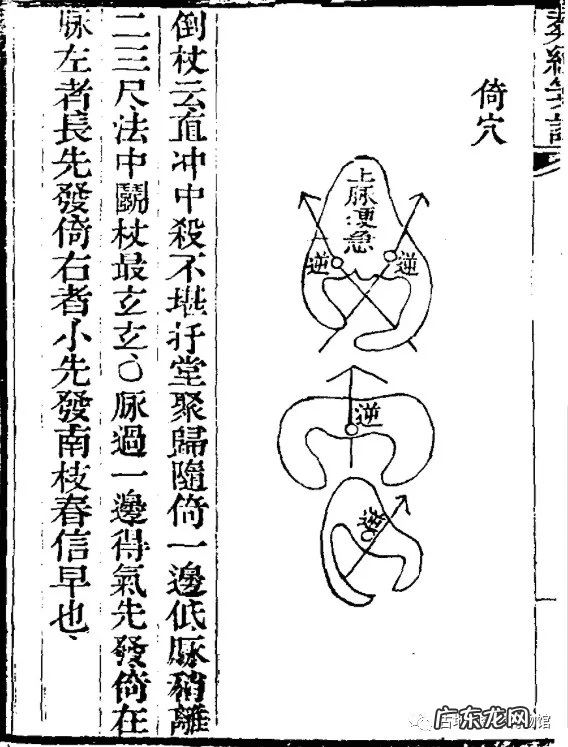 倚穴
上脉硬急
逆
逆
逆
逆
倒杖云直冲中殺不堪扦堂聚歸隨倚一邊低脉稍離
二三尺法中鬭杖最玄玄○脉過一邊得氣先發倚在
脉左者長先發倚右者小先發南枝春信早也、
广东龙网